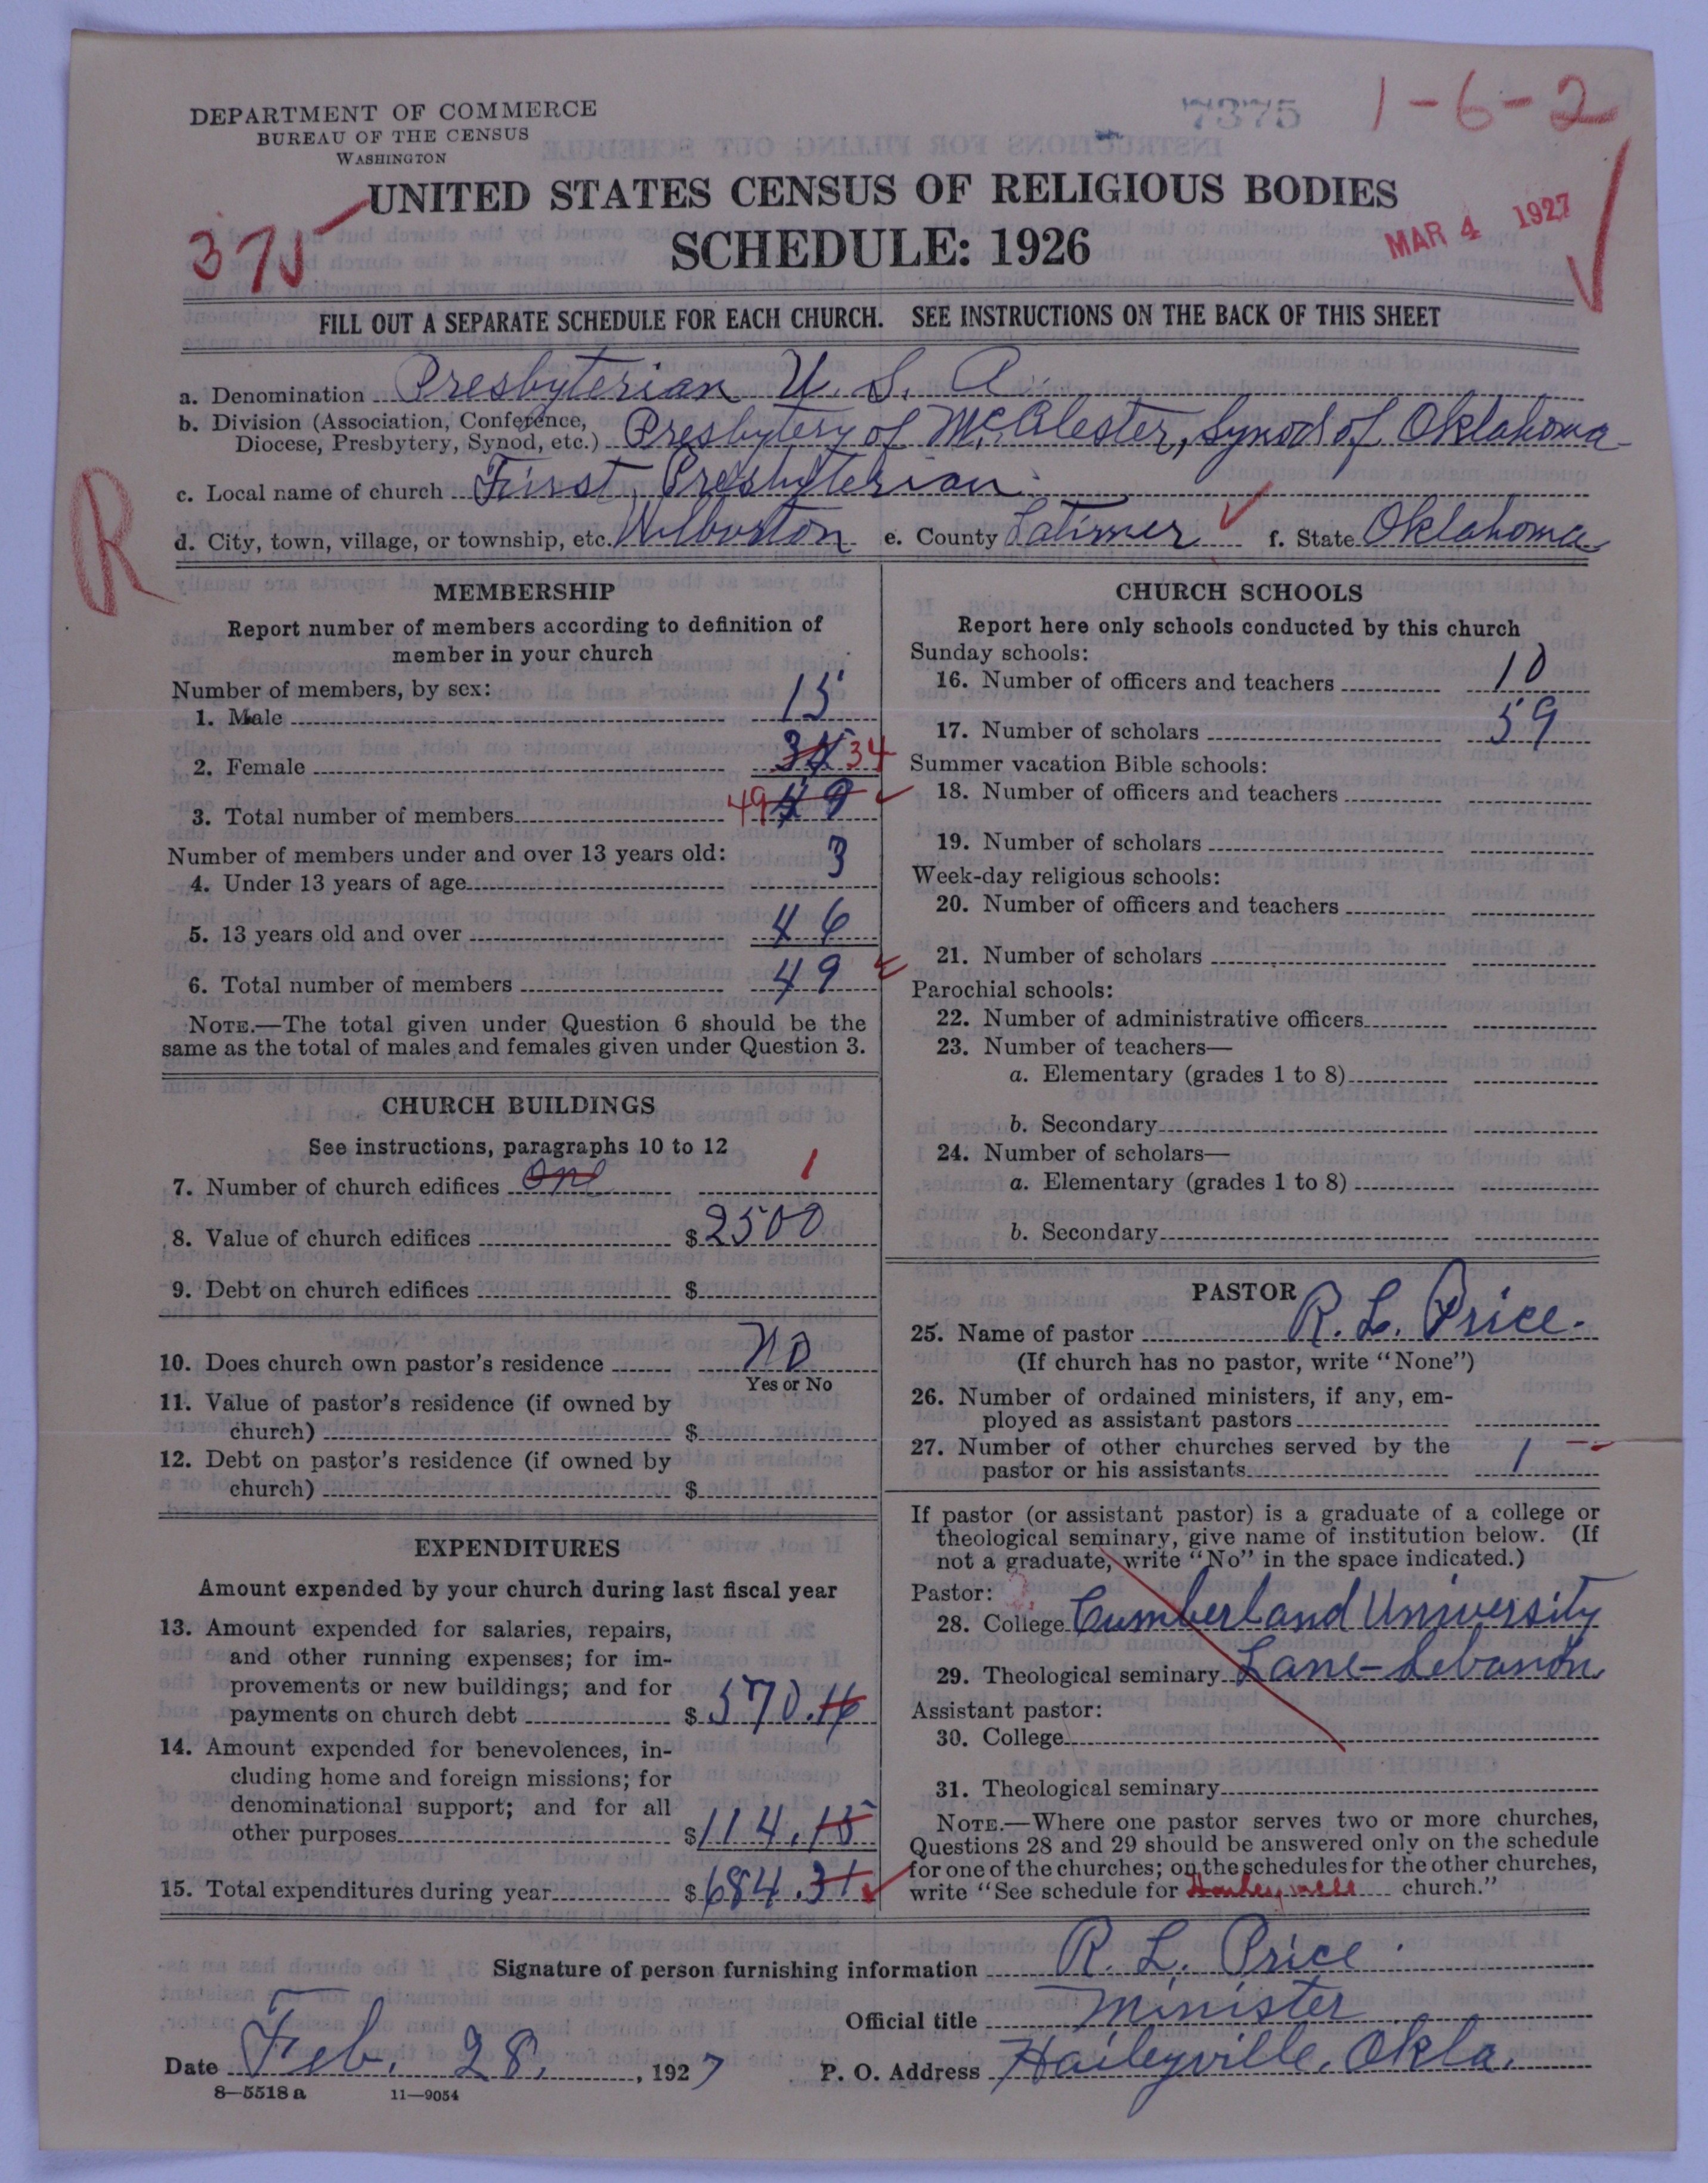 DEPARTMENT OF COMMERCE
BUREAU OF THE CENSUS
WASHINGTON
7375
1-6-2
UNITED STATES CENSUS OF RELIGIOUS BODIES
375
SCHEDULE: 1926
MAR 4 1927
FILL OUT A SEPARATE SCHEDULE FOR EACH CHURCH. SEE INSTRUCTIONS ON THE BACK OF THIS SHEET
a. Denomination Presbyterian U. S. A.
b. Division (Association, Conference, Diocese, Presbytery, Synod, etc.) Presbytery of McAlester, Synod of Oklahoma
R
c. Local name of church First Presbyterian
d. City, town, village, or township, etc. Wilburton e. County Latimer f. State Oklahoma
MEMBERSHIP
Report number of members according to definition of
member in your church
Number of members, by sex:
1. Male 15
2. Female 34
3. Total number of members 49
Number of members under and over 13 years old:
4. Under 13 years of age 3
5. 13 years old and over 46
6. Total number of members 49
NOTE.—The total given under Question 6 should be the
same as the total of males and females given under Question 3.
CHURCH BUILDINGS
See instructions, paragraphs 10 to 12
7. Number of church edifices One 1
8. Value of church edifices $ 2500
9. Debt on church edifices $
10. Does church own pastor's residence No
Yes or No
11. Value of pastor's residence (if owned by
church) $
12. Debt on pastor's residence (if owned by
church) $
EXPENDITURES
Amount expended by your church during last fiscal year
13. Amount expended for salaries, repairs,
and other running expenses; for im-
provements or new buildings; and for
payments on church debt $ 570.16
14. Amount expended for benevolences, in-
cluding home and foreign missions; for
denominational support; and for all
other purposes $ 114.15
15. Total expenditures during year $ 684.31
CHURCH SCHOOLS
Report here only schools conducted by this church
Sunday schools:
16. Number of officers and teachers 10
17. Number of scholars 59
Summer vacation Bible schools:
18. Number of officers and teachers
19. Number of scholars
Week-day religious schools:
20. Number of officers and teachers
21. Number of scholars
Parochial schools:
22. Number of administrative officers
23. Number of teachers—
a. Elementary (grades 1 to 8)
b. Secondary
24. Number of scholars—
a. Elementary (grades 1 to 8)
b. Secondary
PASTOR
25. Name of pastor R. L. Price.
(If church has no pastor, write "None")
26. Number of ordained ministers, if any, em-
ployed as assistant pastors
27. Number of other churches served by the
pastor or his assistants 1
If pastor (or assistant pastor) is a graduate of a college or
theological seminary, give name of institution below. (If
not a graduate, write "No" in the space indicated.)
Pastor:
28. College Cumberland University
29. Theological seminary Lane-Lebanon
Assistant pastor:
30. College
31. Theological seminary
NOTE.—Where one pastor serves two or more churches,
Questions 28 and 29 should be answered only on the schedule
for one of the churches; on the schedules for the other churches,
write "See schedule for Haileyville church."
Signature of person furnishing information R. L. Price
Official title Minister
Date Feb. 28, 1927 P. O. Address Haileyville, Okla.
8—5518 a 11—9054